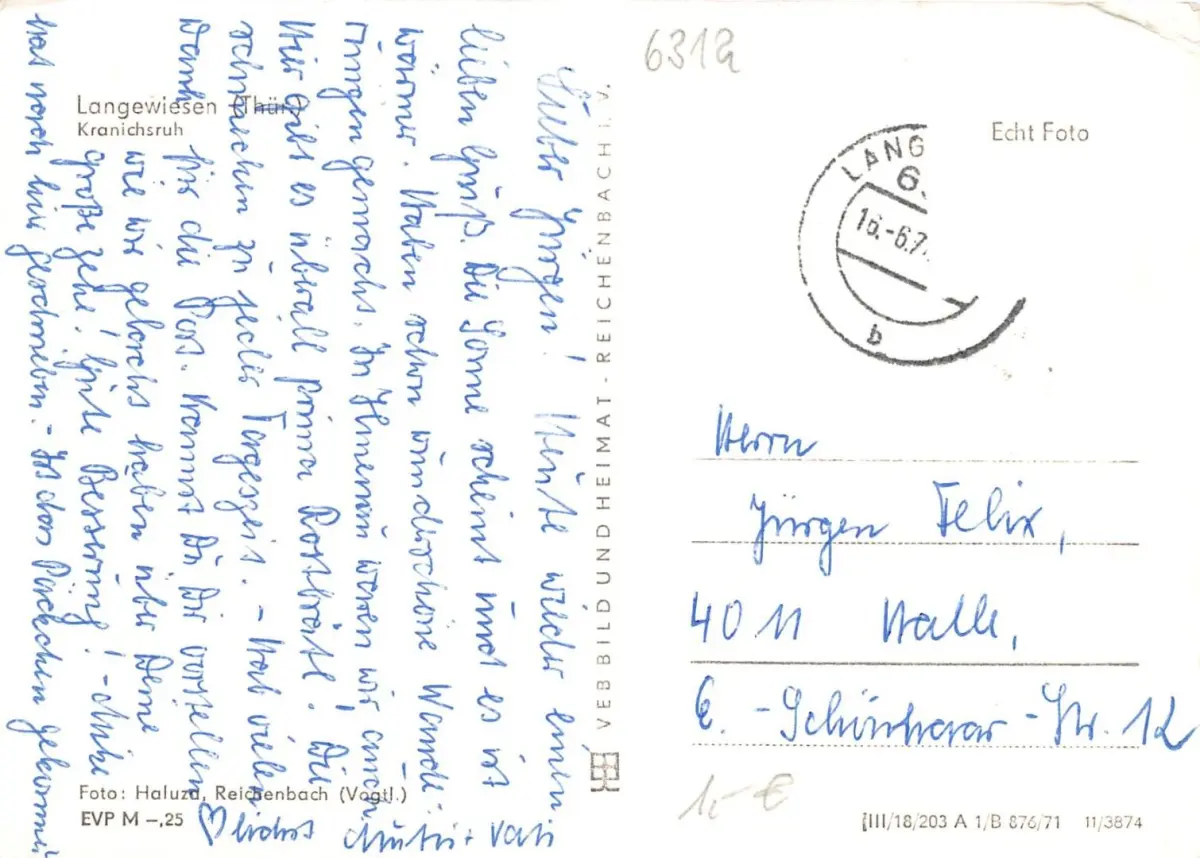 Lieber Jürgen! Heute wieder einen
lieben Gruß. Die Sonne scheint und es ist
wärmer. Haben schon wunderschöne Wande-
rungen gemacht. In Ilmenau waren wir auch.
Hier gibt es überall prima Rostbrätl! Die
schmecken zu jeder Tageszeit. - Hab vielen
Dank für die Post. Kannst Du Dir vorstellen
wie wir gelacht haben über Deine
große Zehe! Gute Besserung! -
hat noch nie geschrieben. - Ist das Päckchen gekommen
♡lichst Mutti + Vati
Langewiesen (Thür.)
Kranichsruh
Foto: Haluza, Reichenbach (Vogtl.)
EVP M -,25
VEB BILD UND HEIMAT · REICHENBACH I. V.
6312
Echt Foto
LANG
6.
16.-6.7
b
Herrn
Jürgen Felix,
4011 Halle,
E.-Schönhaar-Str. 12
1,- €
III/18/203 A 1/B 876/71 11/3874